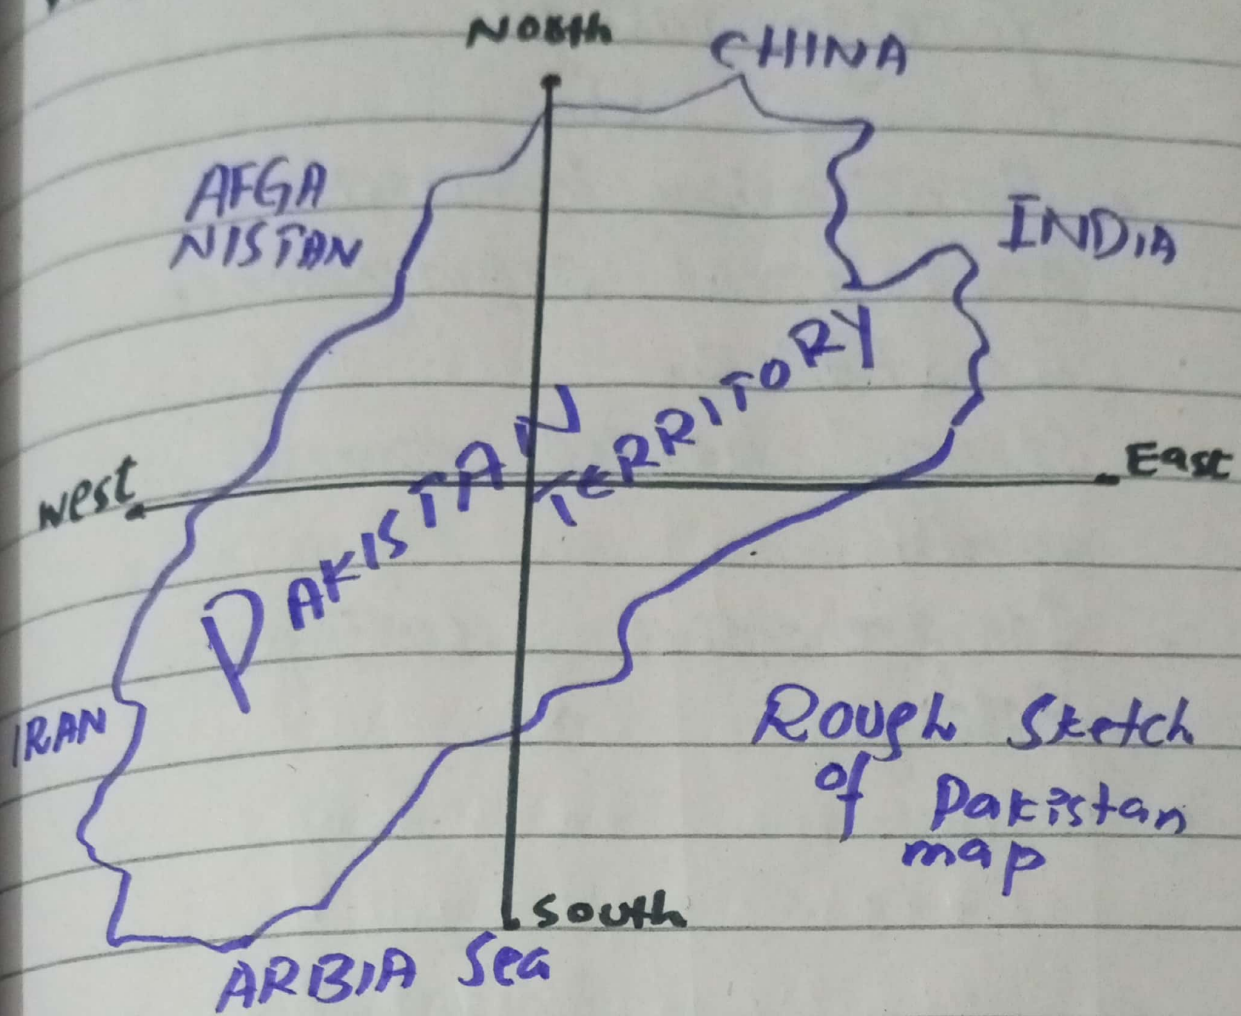 North
CHINA
AFGA
NISTAN
INDIA
PAKISTAN
TERRITORY
West
East
IRAN
Rough Sketch
of Pakistan
map
South
ARBIA Sea